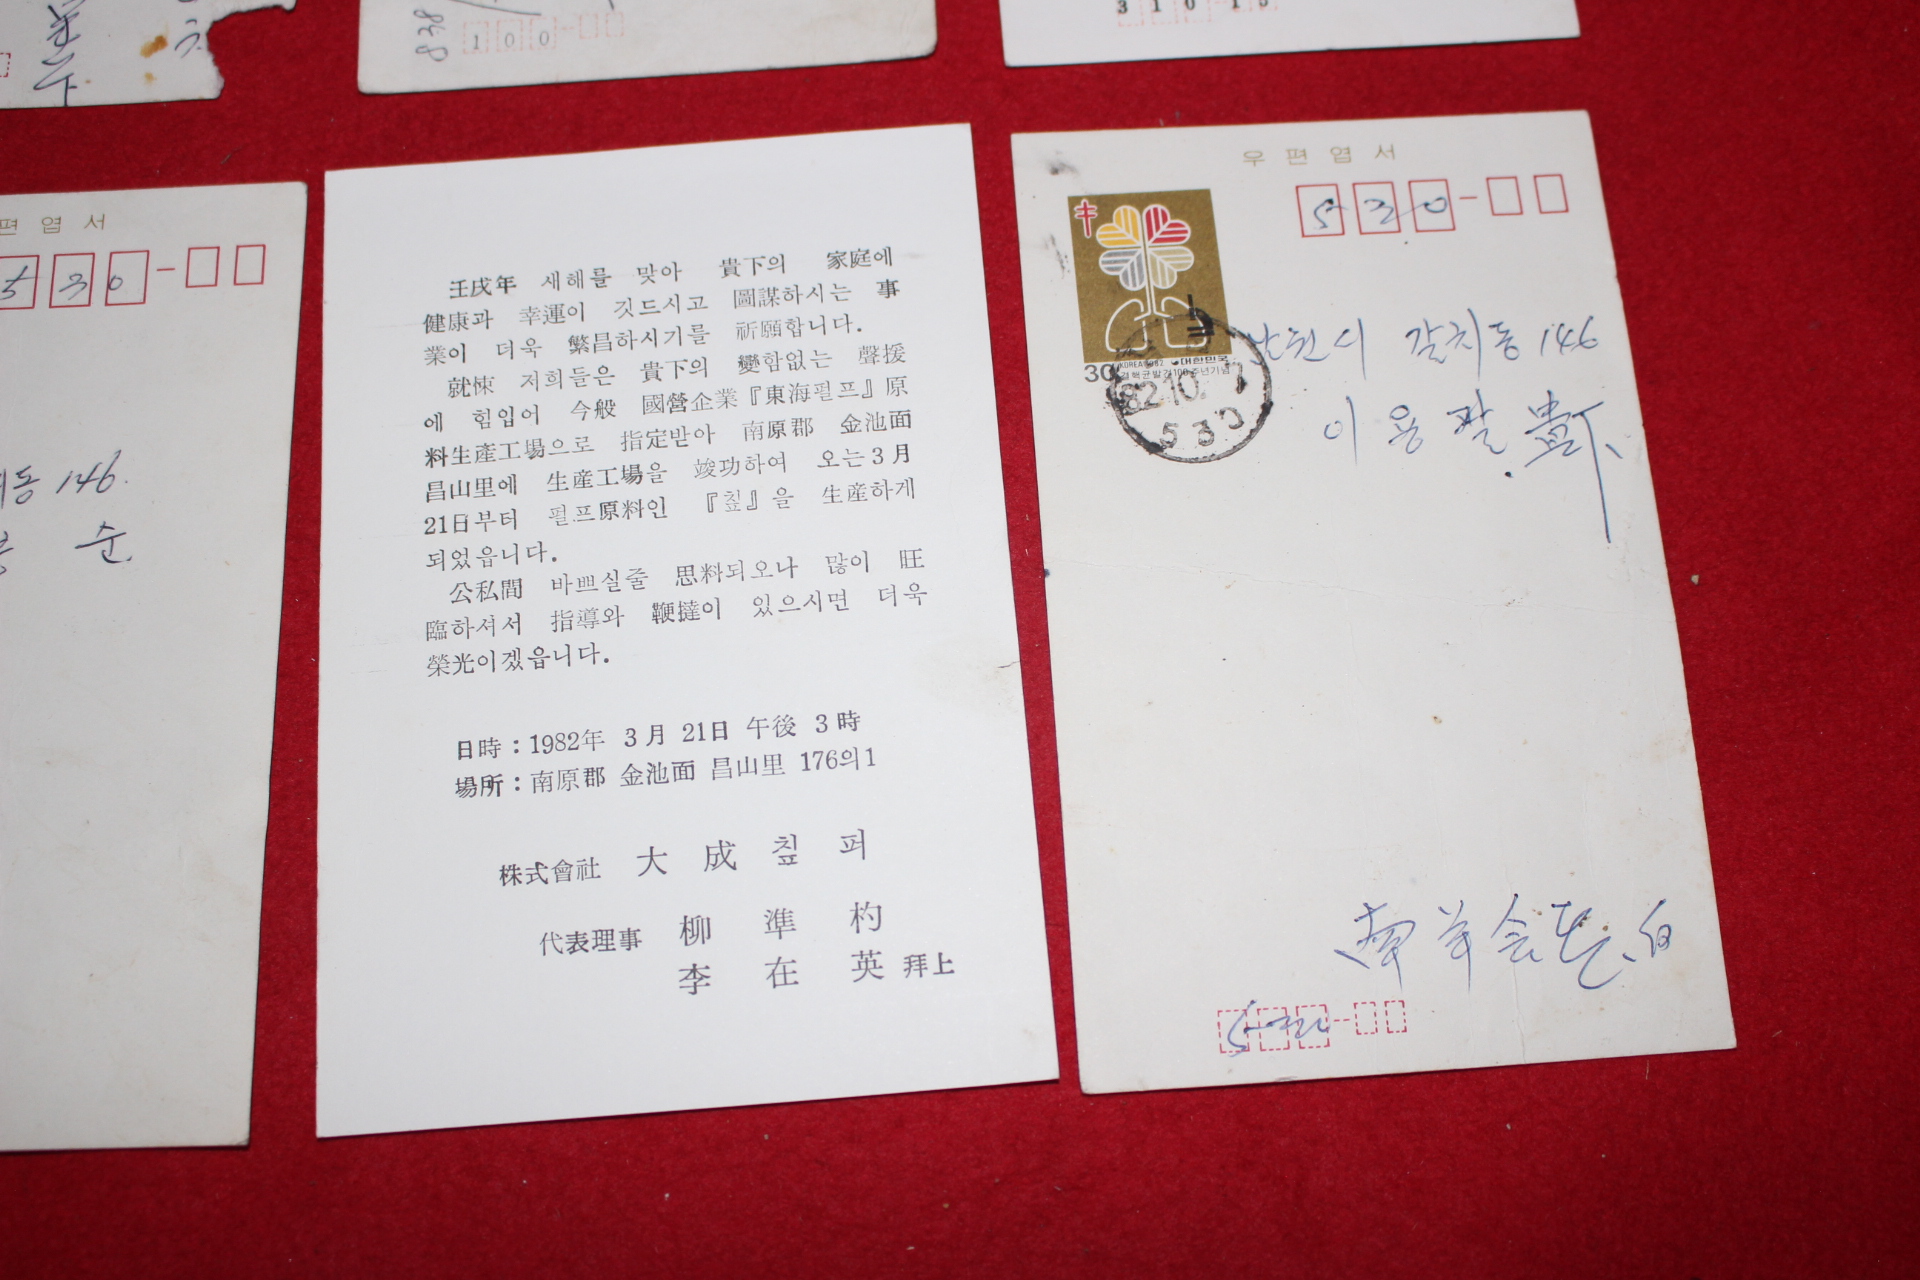 838
100
310-15
편엽서
530
동 146.
순
壬戌年 새해를 맞아 貴下의 家庭에
健康과 幸運이 깃드시고 圖謀하시는 事
業이 더욱 繁昌하시기를 祈願합니다.
就悚 저희들은 貴下의 變함없는 聲援
에 힘입어 今般 國營企業『東海펄프』原
料生産工場으로 指定받아 南原郡 金池面
昌山里에 生産工場을 竣功하여 오는 3月
21日부터 펄프原料인 『칲』을 生産하게
되었읍니다.
公私間 바쁘실줄 思料되오나 많이 旺
臨하셔서 指導와 鞭撻이 있으시면 더욱
榮光이겠읍니다.
日時 : 1982年 3月 21日 午後 3時
場所 : 南原郡 金池面 昌山里 176의1
株式會社 大成칲퍼
代表理事 柳準杓
李在英 拜上
우편엽서
530
30
KOREA 1982 대한민국
결핵균발견100주년기념
82.10.7
530
남원시 갈치동 146
이용팔 貴下